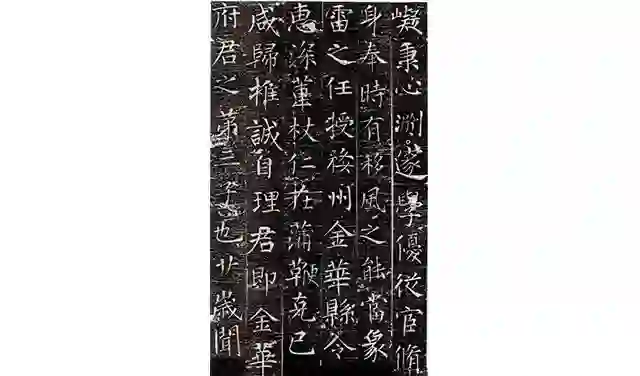 嶷秉心渊邃學優從官脩
身奉時有移風之能當象
雷之任授婺州金華縣令
惠深杖仁在蒲鞭克己
咸歸推誠自理君即金華
府君之第三子也廿歲聞